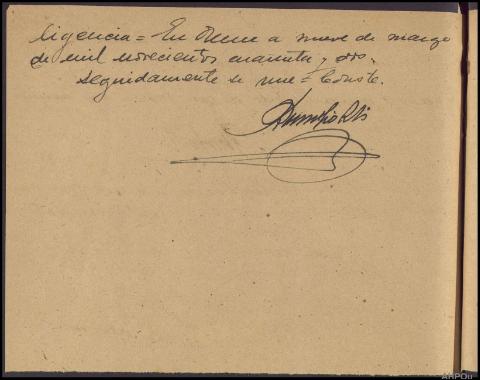 ligencia = En Orense a nueve de marzo
de mil novecientos cuarenta y dos.
Seguidamente se une = Conste.
AHPOu